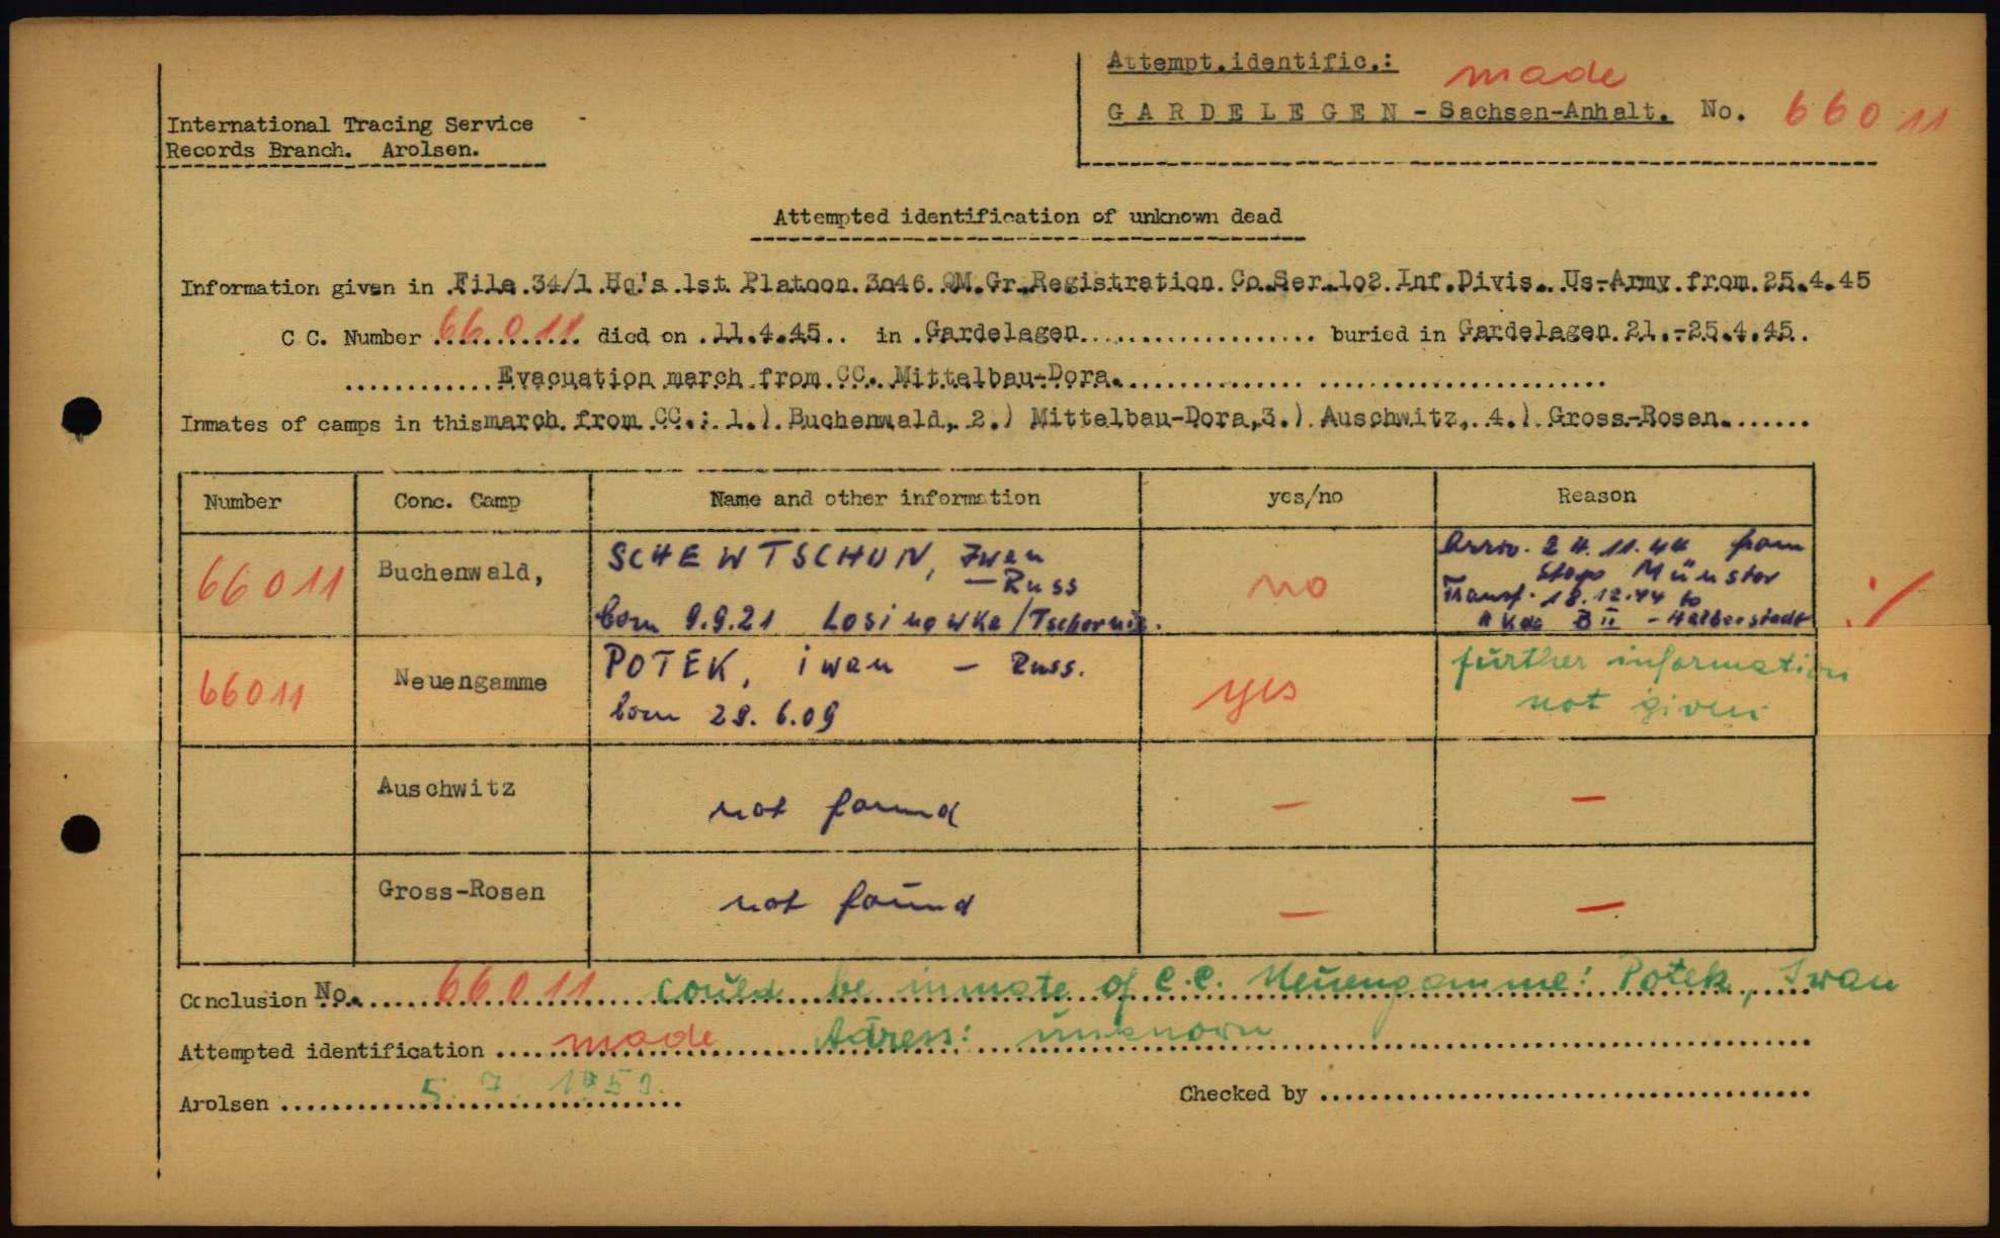 Attempt.identific.: made
GARDELEGEN - Sachsen-Anhalt. No. 66011
International Tracing Service
Records Branch. Arolsen.
Attempted identification of unknown dead
Information given in File.34/1.Hq's.1st.Platoon.3o46.QM.Gr.Registration.Co.Ser.1o2.Inf.Divis..Us-Army.from.25.4.45
C C. Number 66011 died on .11.4.45.. in .Gardelegen.................... buried in Gardelegen.21.-25.4.45.
............Evacuation march.from.CC..Mittelbau-Dora.......................................
Inmates of camps in this march.from.CC.: 1.).Buchenwald,.2.) Mittelbau-Dora,.3.).Auschwitz,.4.).Gross-Rosen.......
Number Conc. Camp Name and other information yes/no Reason
66011 Buchenwald, SCHEWTSCHUN, Iwan - Russ no Arriv. 24.11.44 from
born 9.9.21 Losinowka/Tschernig. Stapo Münster
Transf. 18.12.44 to
Kdo B II - Halberstadt
66011 Neuengamme POTEK, iwan - Russ. yes further information
born 29.6.09 not given
Auschwitz not found — —
Gross-Rosen not found — —
Conclusion No. 66011 could be inmate of C.C. Neuengamme: Potek, Iwan
Attempted identification made Adress: unknown
Arolsen 5. 7. 1950. Checked by